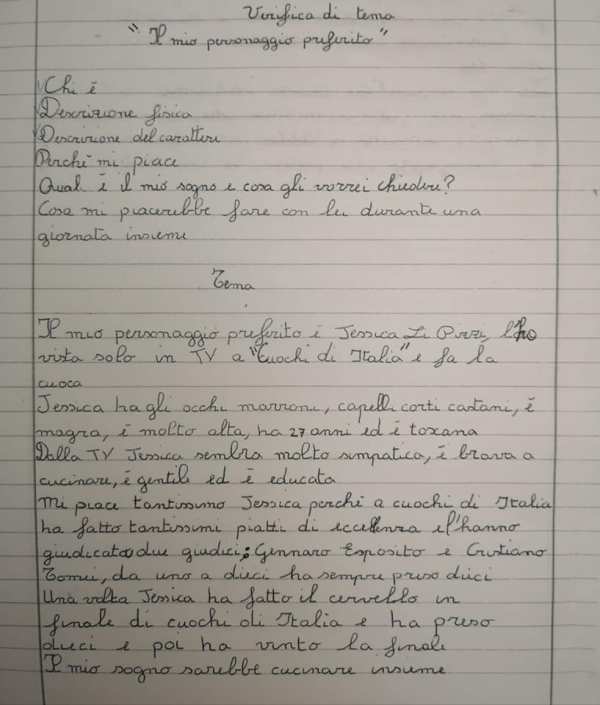 Verifica di tema
"Il mio personaggio preferito"
Chi è
Descrizione fisica
Descrizione del carattere
Perchè mi piace
Qual è il mio sogno e cosa gli vorrei chiedere?
Cosa mi piacerebbe fare con lei durante una
giornata insieme
Tema
Il mio personaggio preferito è Jessica Li Pizzi, l'ho
vista solo in TV a "Cuochi di Italia" e fa la
cuoca
Jessica ha gli occhi marroni, capelli corti castani, è
magra, è molto alta, ha 27 anni ed è toscana
Dalla TV Jessica sembra molto simpatica, è brava a
cucinare, è gentile ed è educata
Mi piace tantissimo Jessica perchè a cuochi di Italia
ha fatto tantissimi piatti di eccellenza e l'hanno
giudicata due giudici; Gennaro Esposito e Cristiano
Tomei, da uno a dieci ha sempre preso dieci
Una volta Jessica ha fatto il cervello in
finale di cuochi di Italia e ha preso
dieci e poi ha vinto la finale
Il mio sogno sarebbe cucinare insieme